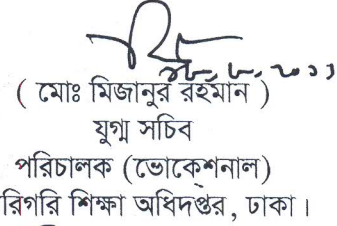 ২৮.৮.২০১১
( মোঃ মিজানুর রহমান )
যুগ্ম সচিব
পরিচালক (ভোকেশনাল)
রিগরি শিক্ষা অধিদপ্তর, ঢাকা।